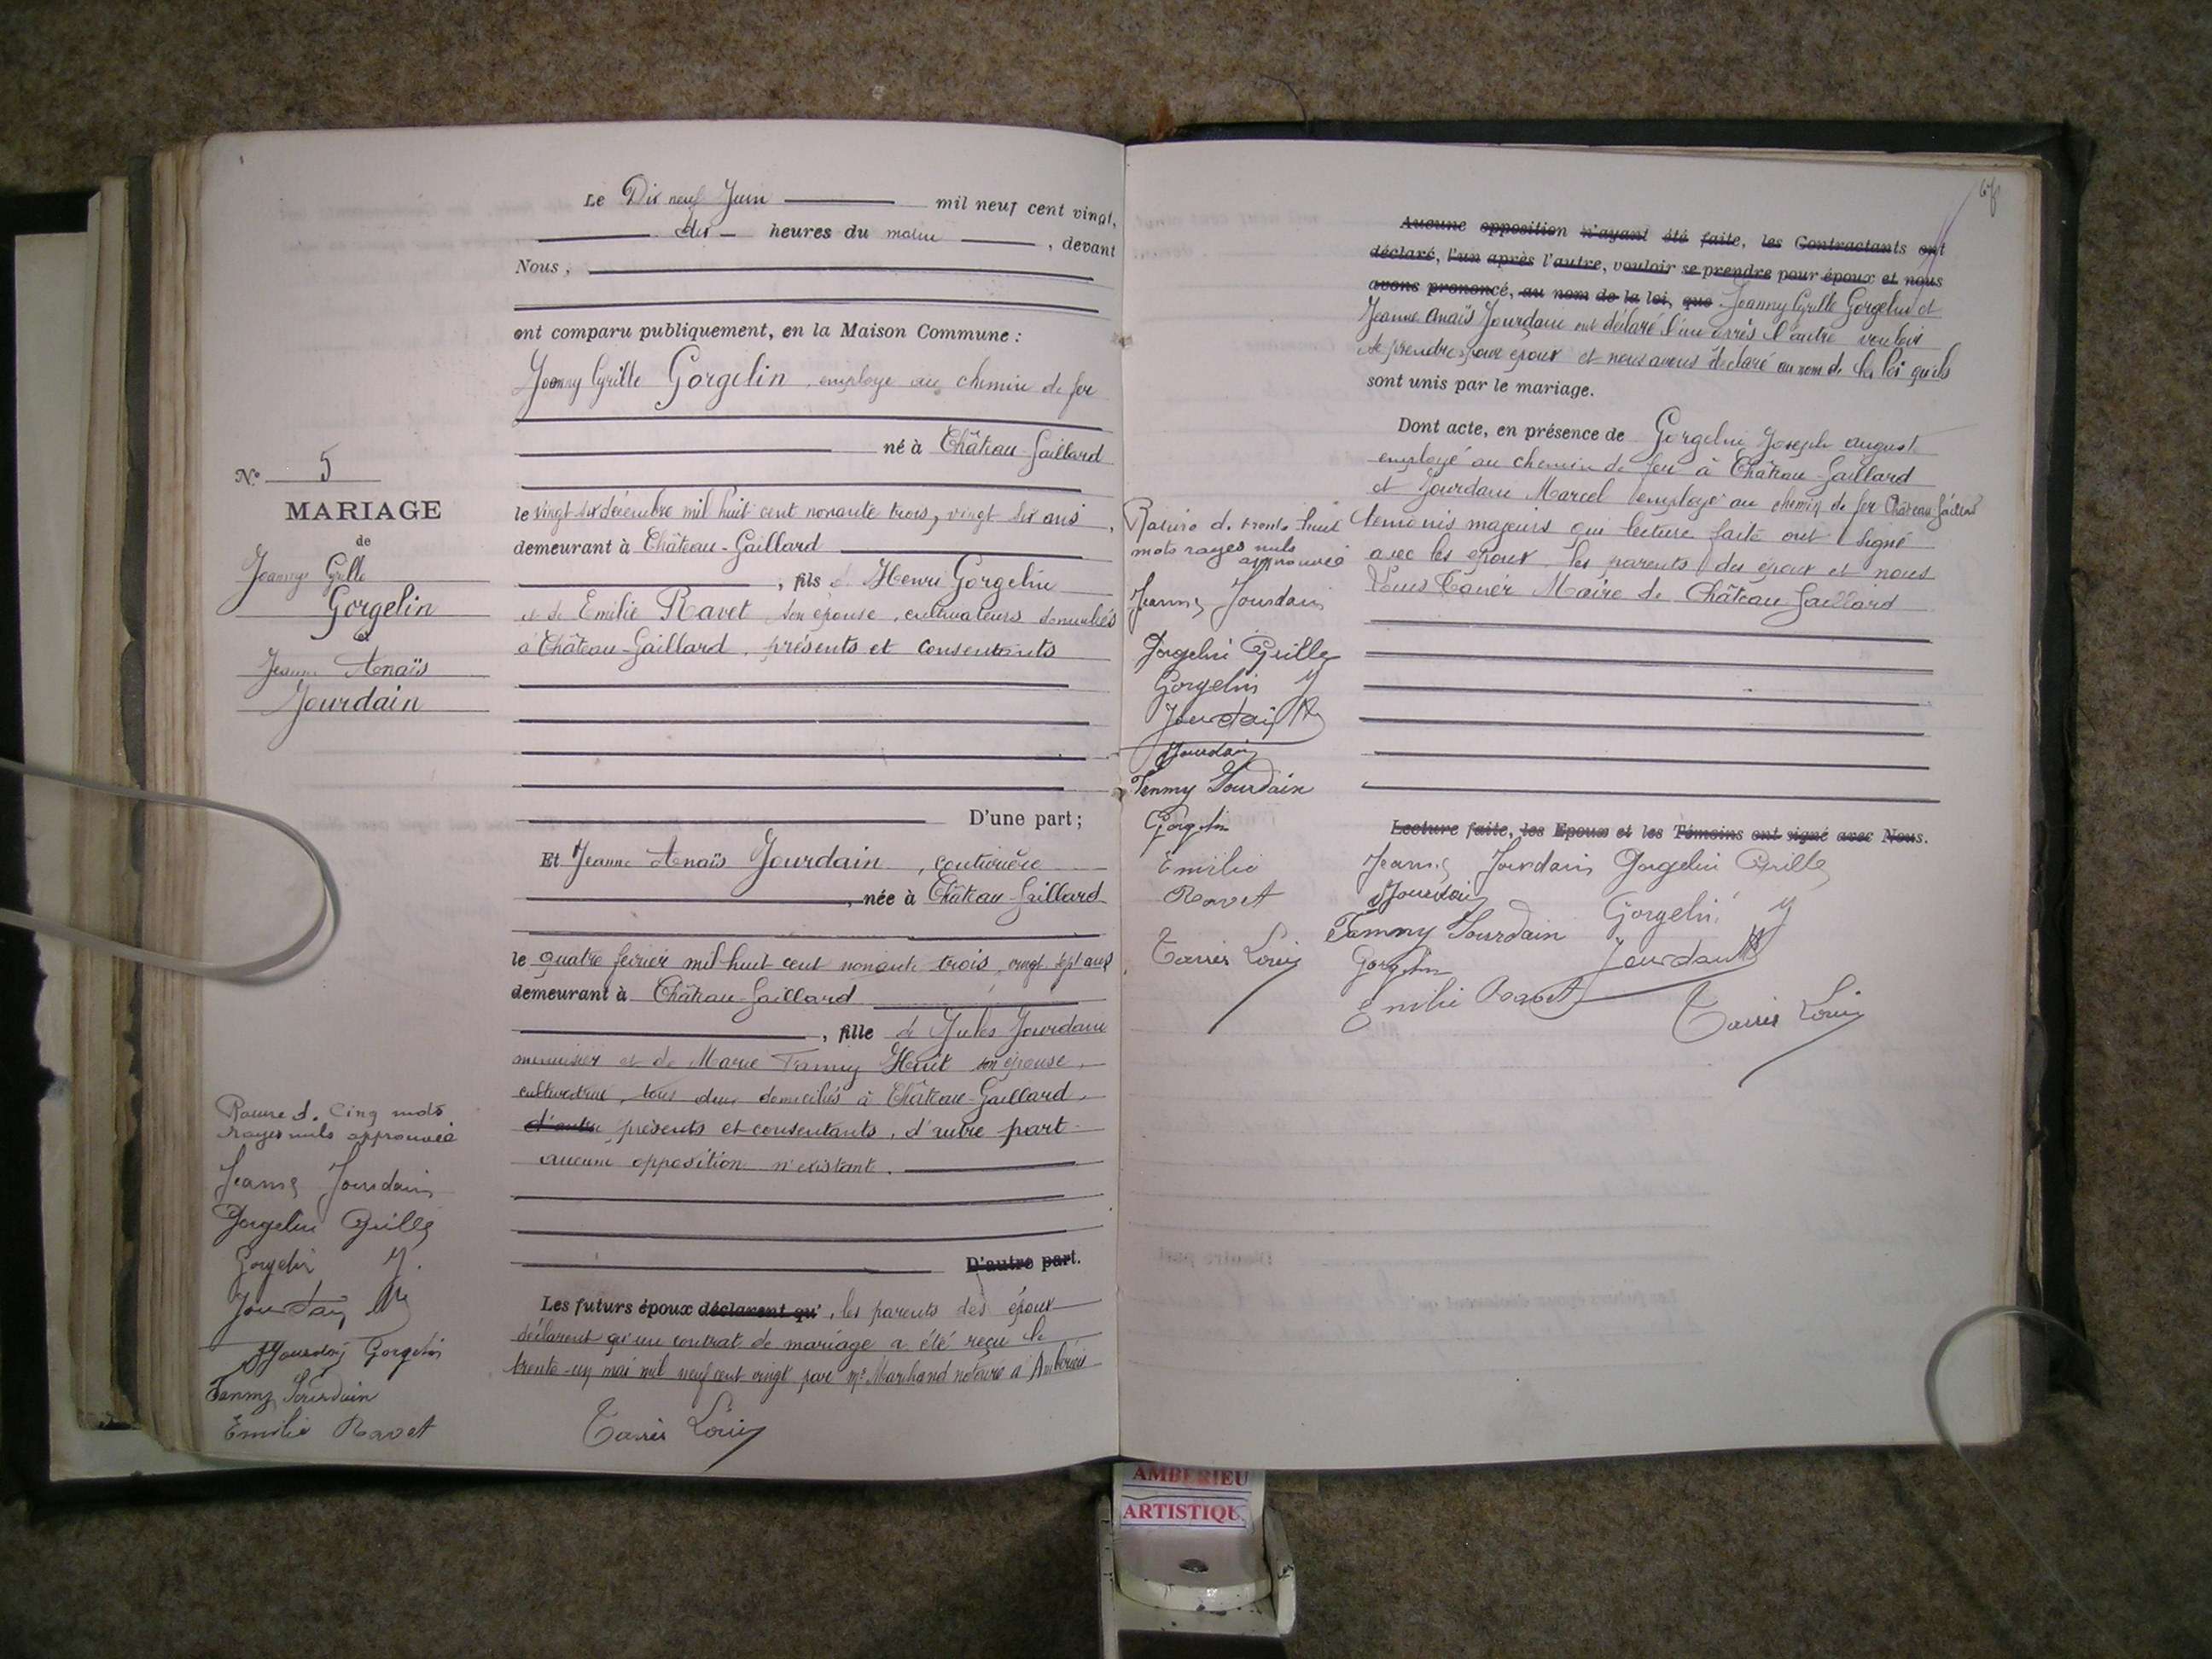 N° 5
MARIAGE
de
Jeanny Cyrille
Gorgelin
et
Jeanne Anaïs
Jourdain
Rature de Cinq mots
rayés nuls approuvée
Jeanne Jourdain
Gorgelin Cyrille
Gorgelin J.
Jourdain M
Jourdain Gorgelin
Fanny Jourdain
Emilie Ravet
Le Dix neuf Juin mil neuf cent vingt,
dix heures du matin, devant
Nous,
ont comparu publiquement, en la Maison Commune :
Jeanny Cyrille Gorgelin, employé au chemin de fer
né à Château-Gaillard
le vingt six décembre mil huit cent nonante trois, vingt six ans,
demeurant à Château-Gaillard
, fils d Henri Gorgelin
et de Emilie Ravet son épouse, cultivateurs domiciliés
à Château-Gaillard, présents et consentants
D'une part ;
Et Jeanne Anaïs Jourdain, couturière
, née à Château Gaillard
le quatre février mil huit cent nonante trois, vingt sept ans,
demeurant à Château-Gaillard
, fille de Jules Jourdain
menuisier et de Marie Fanny Huit son épouse,
cultivatrice, tous deux domiciliés à Château-Gaillard,
d'autre présents et consentants, d'autre part
aucune opposition n'existant.
D'autre part.
Les futurs époux déclarent qu', les parents des époux
déclarent qu'un contrat de mariage a été reçu le
trente-un mai mil neuf cent vingt par Me Marchand notaire à Ambérieu
Tarrès Louis
67
Aucune opposition n'ayant été faite, les Contractants ont
déclaré, l'un après l'autre, vouloir se prendre pour époux et nous
avons prononcé, au nom de la loi, que Jeanny Cyrille Gorgelin et
Jeanne Anaïs Jourdain ont déclaré l'un après l'autre vouloir
se prendre pour époux et nous avons déclaré au nom de la loi qu'ils
sont unis par le mariage.
Dont acte, en présence de Gorgelin Joseph auguste
employé au chemin de fer à Château-Gaillard
et Jourdain Marcel employé au chemin de fer Château Gaillard
témoins majeurs qui lecture faite ont signé
avec les époux, les parents des époux et nous
Louis Tarrès Maire de Château Gaillard
Rature de trente huit
mots rayés nuls
approuvée
Jeanne Jourdain
Gorgelin Cyrille
Gorgelin J
Jourdain M
Jourdain
Fanny Jourdain
Gorgelin
Emilie
Ravet
Tarrès Louis
Lecture faite, les Epoux et les Témoins ont signé avec Nous.
Jeanne Jourdain Gorgelin Cyrille
Jourdain Gorgelin J
Fanny Jourdain
Gorgelin Jourdain M
Emilie Ravet Tarrès Louis
AMBERIEU
ARTISTIQU